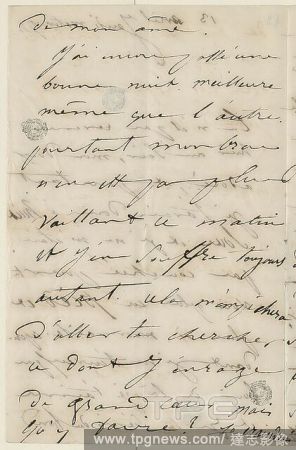 de mon âme.
J'ai encore passé une
bonne nuit meilleure
même que l'autre.
pourtant mon bras
n'en est pas plus
vaillant ce matin
et j'en souffre toujours
autant. cela m'empêchera
d'aller te chercher,
ce dont j'enrage
de grand cœur mais
qu'y faire!
TPG
www.tpgnews.com/達志影像